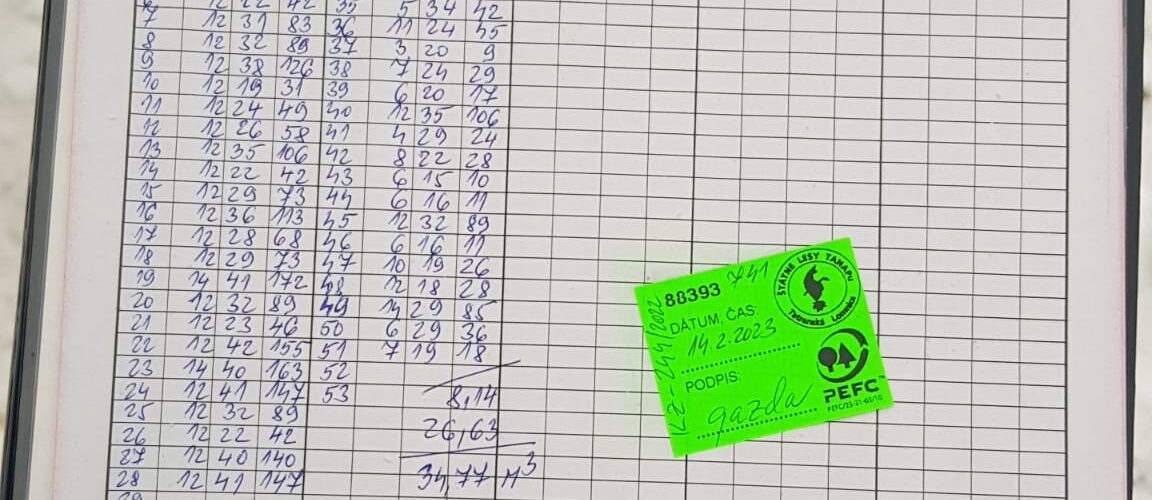 12 22 42 35 5 34 42
7 12 31 83 36 11 24 45
8 12 32 89 37 3 20 9
9 12 38 126 38 7 24 29
10 12 19 31 39 6 20 17
11 12 24 49 40 12 35 106
12 12 26 58 41 4 29 24
13 12 35 106 42 8 22 28
14 12 22 42 43 6 15 10
15 12 29 73 44 6 16 11
16 12 36 113 45 12 32 89
17 12 28 68 46 6 16 11
18 12 29 73 47 10 19 26
19 14 41 172 48 12 18 28
20 12 32 89 49 14 29 85
21 12 23 46 50 6 29 36
22 12 42 155 51 7 19 18
23 14 40 163 52
24 12 41 147 53 8,14
25 12 32 89
26 12 22 42 26,63
27 12 40 140
28 12 41 147 34,77 M³
29
88393 741
ŠTÁTNE LESY TANAPU
Tatranská Lomnica
DÁTUM, ČAS:
14.2.2023
PODPIS:
gazda
PEFC™
PEFC/23-21-03/10